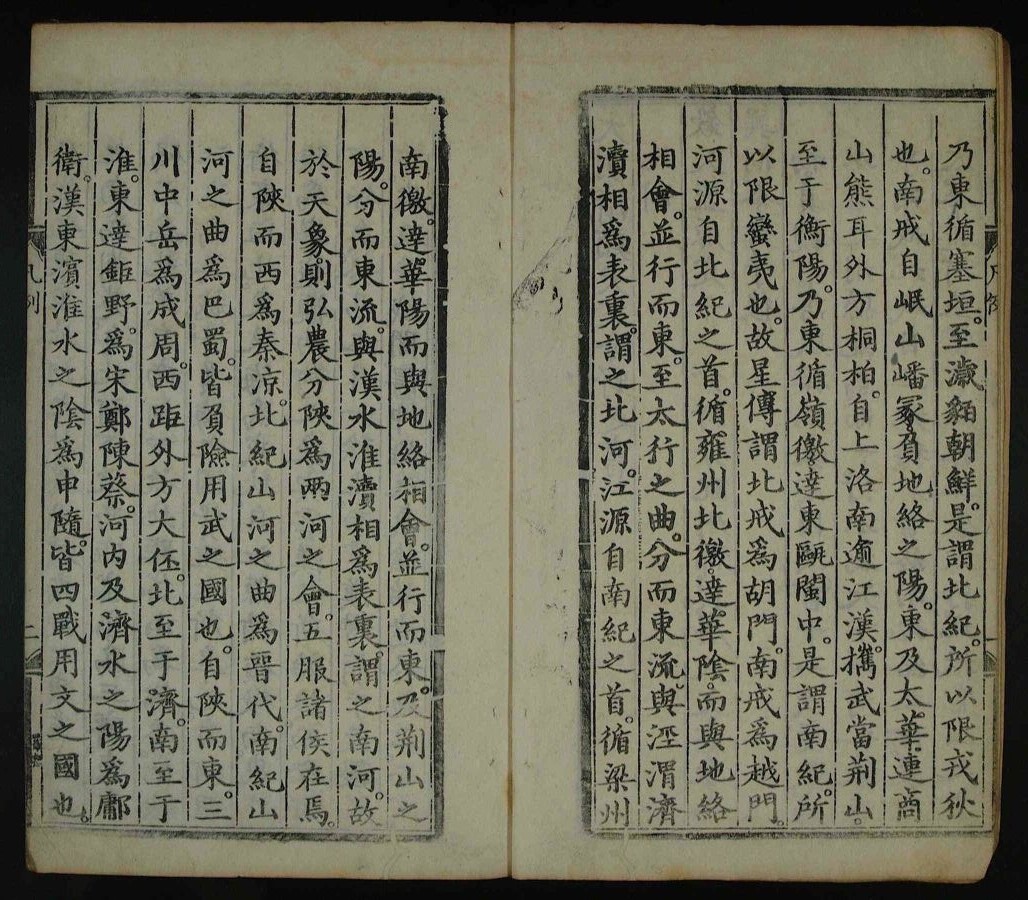 乃東循塞垣。至濊貊朝鮮。是謂北紀。所以限戎狄
也。南戒自岷山嶓冢負地絡之陽。東及太華。連商
山熊耳外方桐柏。自上洛南逾江漢。攜武當荆山。
至于衡陽。乃東循嶺徼達東甌閩中。是謂南紀。所
以限蠻夷也。故星傳謂北戒爲胡門。南戒爲越門。
河源自北紀之首。循雍州北徼。達華陰。而與地絡
相會。並行而東。至太行之曲。分而東流。與涇渭濟
瀆相爲表裏。謂之北河。江源自南紀之首。循梁州
南徼。達華陽而與地絡相會。並行而東。及荆山之
陽。分而東流。與漢水淮瀆相爲表裏。謂之南河。故
於天象則弘農分陜爲兩河之會。五服諸侯在焉。
自陜而西爲秦凉。北紀山河之曲爲晉代。南紀山
河之曲爲巴蜀。皆負險用武之國也。自陜而東。三
川中岳爲成周。西距外方大伾。北至于濟。南至于
淮。東達鉅野。爲宋鄭陳蔡。河内及濟水之陽爲鄘
衛。漢東濱淮水之陰爲申隨。皆四戰用文之國也。
凡例
二